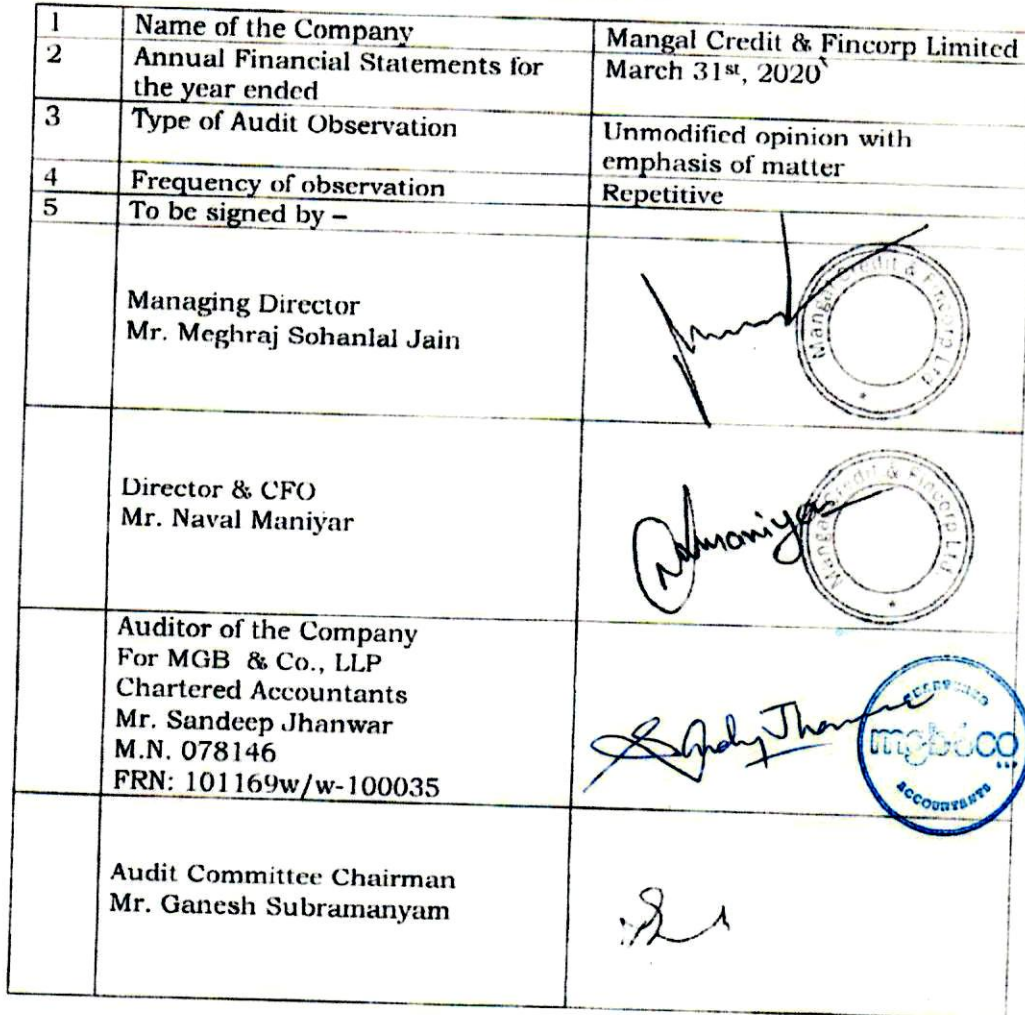 1 Name of the Company Mangal Credit & Fincorp Limited
2 Annual Financial Statements for March 31st, 2020
the year ended
3 Type of Audit Observation Unmodified opinion with
emphasis of matter
4 Frequency of observation Repetitive
5 To be signed by –
Managing Director
Mr. Meghraj Sohanlal Jain
Mangal Credit & Fincorp Ltd
Director & CFO
Mr. Naval Maniyar
Mangal Credit & Fincorp Ltd
Auditor of the Company
For MGB & Co., LLP
Chartered Accountants
Mr. Sandeep Jhanwar
M.N. 078146
FRN: 101169w/w-100035
mgb&co
ACCOUNTANTS
Audit Committee Chairman
Mr. Ganesh Subramanyam